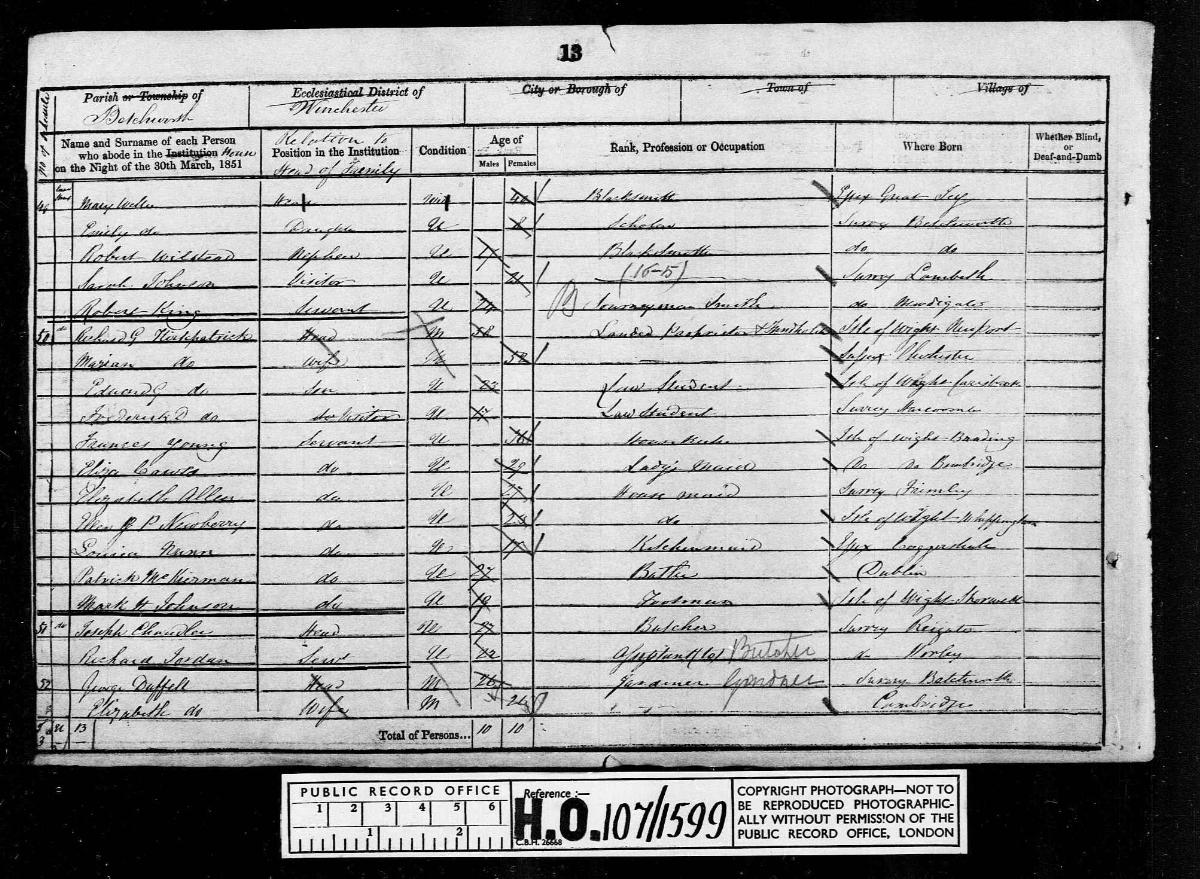 13
Parish or Township of Ecclesiastical District of City or Borough of Town of Village of
Betchworth Winchester
No of Schedule Name and Surname of each Person who abode in the Institution House on the Night of the 30th March, 1851 Relation to Position in the Institution Head of Family Condition Age of Males Females Rank, Profession or Occupation Where Born Whether Blind, or Deaf-and-Dumb
49 Mary Weller Head Wid 40 Blacksmith Essex Great
Emily do Daughter U 8 Scholar Surrey Betchworth
Robert Wilstead Nephew U 17 Blacksmith do do
Sarah Johnson Visitor U 21 (16-15) Surrey Lambeth
Robert King Servant U 24 B Journeyman Smith do Newdigate
50 do Richard G Kirkpatrick Head M 58 Landed Proprietor & Fundholder Isle of Wight Newport
Marian do Wife 58 Sussex Chichester
Edward G do Son U 22 Law Student Isle of Wight Carisbrook
Frederick D do do Visitor U 17 Law Student Surrey
Frances Young Servant U 36 House Isle of Wight Brading
Eliza do U 29 Lady's Maid Do Do Bembridge
Elizabeth Allen do U 27 House maid Surrey Frimley
Ellen P Newberry do U 24 do Isle of Wight Whippingham
Louisa Nunn do U Kitchenmaid Essex Coggeshall
Patrick McKiernan do U 27 Butler Dublin
Mark H Johnson do U 19 Footman Isle of Wight Shorwell
51 do Joseph Chandler Head 27 Butcher Surrey Reigate
Richard Jordan Servt U 22 Assistant to Butcher Horley
52 George Duffell Head M 26 Gardiner Gardner Surrey Betchworth
Elizabeth do Wife M 26 Cambridge
13 Total of Persons... 10 10
PUBLIC RECORD OFFICE
1 2 3 4 5 6
1 2
Reference :—
H.O. 107/1599
C.B.H. 26668
COPYRIGHT PHOTOGRAPH—NOT TO
BE REPRODUCED PHOTOGRAPHIC-
ALLY WITHOUT PERMISSION OF THE
PUBLIC RECORD OFFICE, LONDON